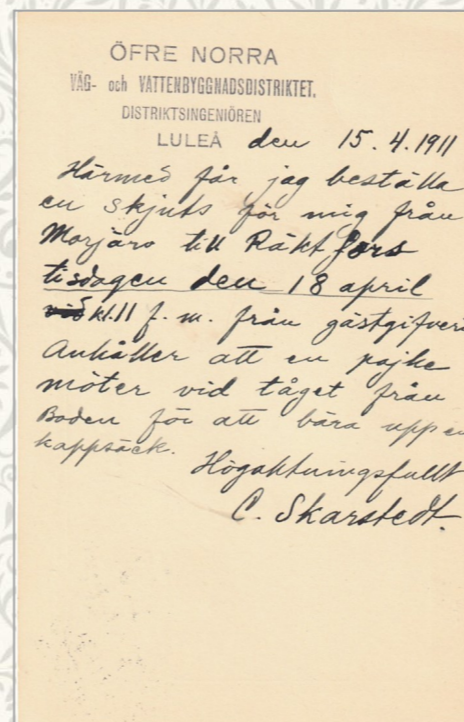 ÖFRE NORRA
VÄG- och VATTENBYGGNADSDISTRIKTET.
DISTRIKTSINGENIÖREN
LULEÅ den 15.4.1911
Härmed får jag beställa
en skjuts för mig från
Morjärv till Räktfors
tisdagen den 18 april
vid kl.11 f.m. från gästgifveri
Anhåller att en pojke
möter vid tåget från
Boden för att bära upp en
kappsäck.
Högaktningsfullt
C. Skarstedt.